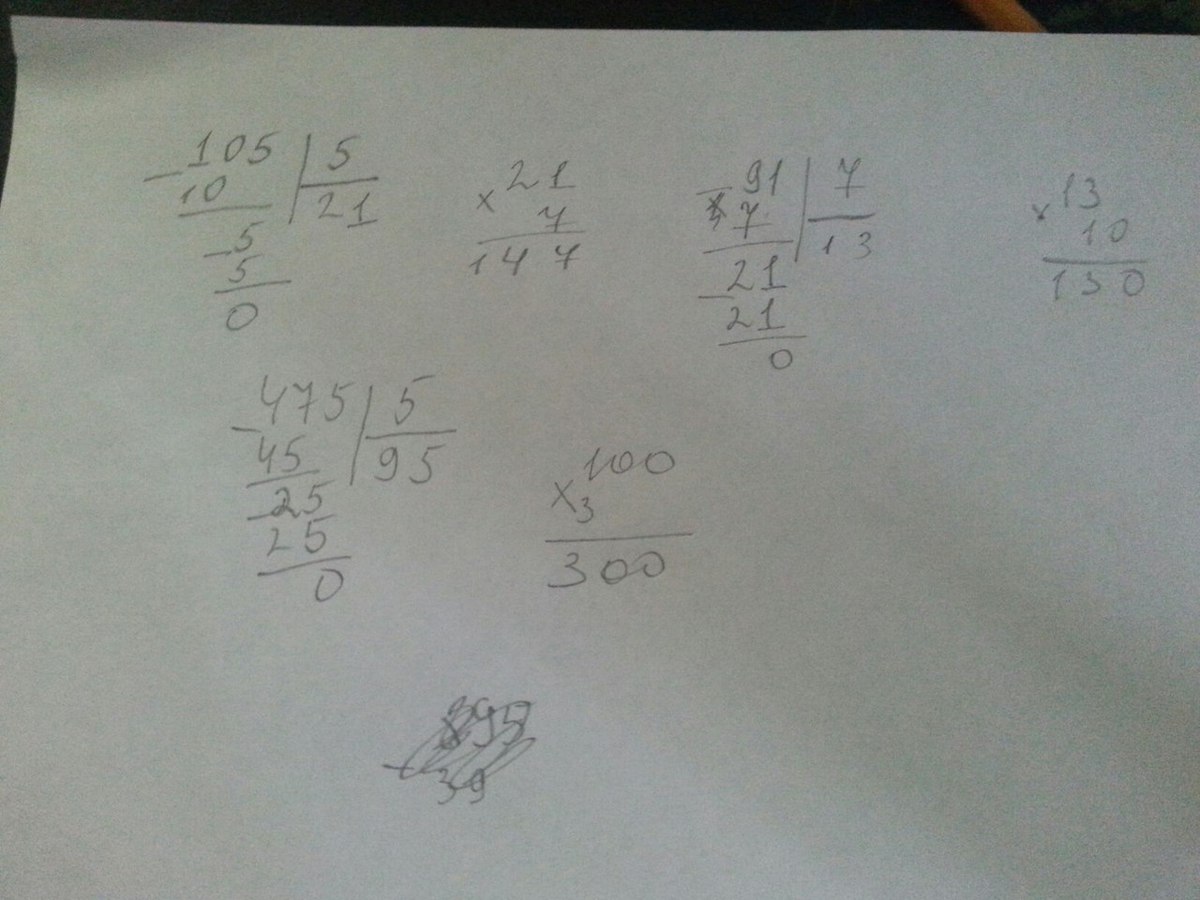 105 | 5
- 10 | 21
- 5
5
0
× 21
7
147
- 91 | 7
7 | 13
- 21
21
0
× 13
10
130
- 475 | 5
45 | 95
- 25
25
0
100
× 3
300
39